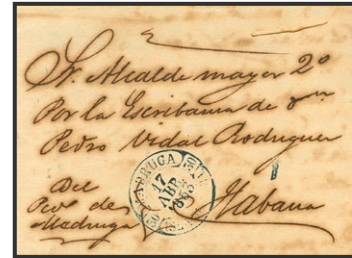 Sr. Alcalde mayor 2º
Por la Escribania de Dn
Pedro Vidal Rodriguez
Del
Pdo de
Madruga
Habana
MADRUGA
17
ABR
1853